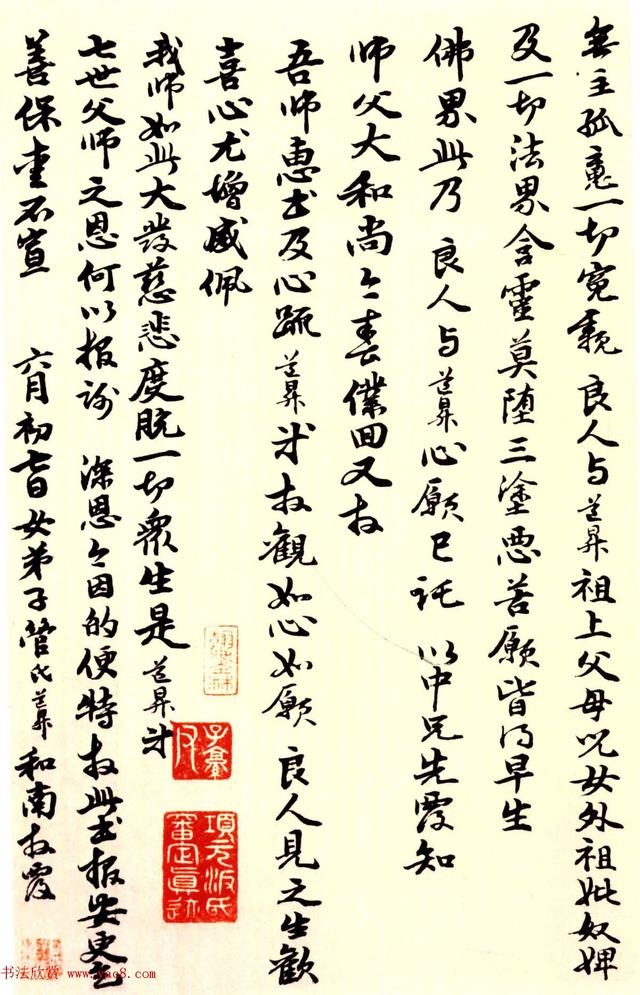 無主孤魂一切冤親 良人与道昇祖上父母児女外祖妣奴婢
及一切法界含靈莫墮三塗惡善願皆得早生
佛界此乃 良人与道昇心願已託 以中兄先覆知
師父大和尚今春僕回又拜
吾師惠書及心疏道昇等拜觀如心如願 良人見之生歡
喜心尤增感佩
我師如此大發慈悲度脫一切眾生是道昇等
七世父師之恩何以报谢 深恩今因的便特拜此書报安更乞
善保重不宣 六月初七日女弟子管氏道昇和南拜覆
項元汴氏審定真跡
书法欣赏 www.yac8.com